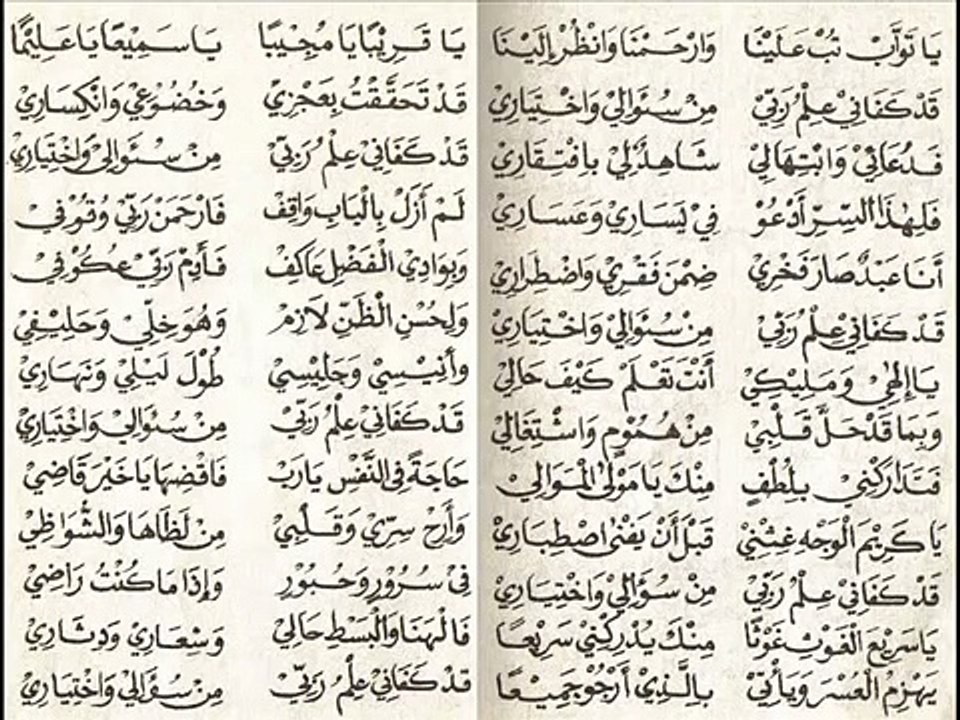 يَا تَوَّابْ تُبْ عَلَيْنَا وَارْحَمْنَا وَانْظُرْ إِلَيْنَا
قَدْ كَفَانِيْ عِلْمُ رَبِّيْ مِنْ سُؤَالِيْ وَاخْتِيَارِيْ
فَدُعَائِيْ وَابْتِهَالِيْ شَاهِدٌ لِيْ بِافْتِقَارِيْ
فَلِهٰذَا السِّرِّ أَدْعُوْ فِيْ يَسَارِيْ وَعَسَارِيْ
أَنَا عَبْدٌ صَارَ فَخْرِيْ ضِمْنَ فَقْرِيْ وَاضْطِرَارِيْ
قَدْ كَفَانِيْ عِلْمُ رَبِّيْ مِنْ سُؤَالِيْ وَاخْتِيَارِيْ
يَا إِلٰهِيْ وَمَلِيْكِيْ أَنْتَ تَعْلَمْ كَيْفَ حَالِيْ
وَبِمَا قَدْ حَلَّ قَلْبِيْ مِنْ هُمُوْمٍ وَاشْتِغَالِيْ
فَتَدَارَكْنِيْ بِلُطْفٍ مِنْكَ يَا مَوْلَى الْمَوَالِيْ
يَا كَرِيْمَ الْوَجْهِ غِثْنِيْ قَبْلَ أَنْ يَفْنٰى اصْطِبَارِيْ
قَدْ كَفَانِيْ عِلْمُ رَبِّيْ مِنْ سُؤَالِيْ وَاخْتِيَارِيْ
يَا سَرِيْعَ الْغَوْثِ غَوْثًا مِنْكَ يُدْرِكْنِيْ سَرِيْعًا
يَهْزِمُ الْعُسْرَ وَيَأْتِيْ بِالَّذِيْ أَرْجُوْ جَمِيْعًا
يَا قَرِيْبًا يَا مُجِيْبًا يَا سَمِيْعًا يَا عَلِيْمًا
قَدْ تَحَقَّقْتُ بِعَجْزِيْ وَخُضُوْعِيْ وَانْكِسَارِيْ
قَدْ كَفَانِيْ عِلْمُ رَبِّيْ مِنْ سُؤَالِيْ وَاخْتِيَارِيْ
لَمْ أَزَلْ بِالْبَابِ وَاقِفْ فَارْحَمَنْ رَبِّيْ وُقُوْفِيْ
وَبِوَادِي الْفَضْلِ عَاكِفْ فَأَدِمْ رَبِّيْ عُكُوْفِيْ
وَلِحُسْنِ الْظَّنِّ لَازِمْ وَهُوَ خِلِّيْ وَحَلِيْفِيْ
وَأَنِيْسِيْ وَجَلِيْسِيْ طُوْلَ لَيْلِيْ وَنَهَارِيْ
قَدْ كَفَانِيْ عِلْمُ رَبِّيْ مِنْ سُؤَالِيْ وَاخْتِيَارِيْ
حَاجَةً فِى النَّفْسْ يَا رَبْ فَاقْضِهَا يَا خَيْرَ قَاضِيْ
وَأَرِحْ سِرِّيْ وَقَلْبِيْ مِنْ لَظَاهَا وَالشُّوَاظِيْ
فِيْ سُرُوْرٍ وَحُبُوْرٍ وَإِذَا مَا كُنْتُ رَاضِيْ
فَالْهَنَا وَالْبَسْطُ حَالِيْ وَشِعَارِيْ وَدِثَارِيْ
قَدْ كَفَانِيْ عِلْمُ رَبِّيْ مِنْ سُؤَالِيْ وَاخْتِيَارِيْ